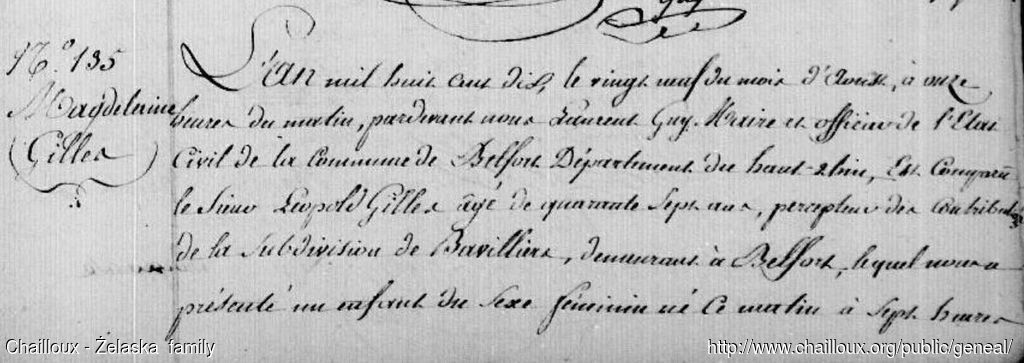 Guy
N.º 135
Magdeleine
Gilles
L'an mil huit cent dix, le vingt neuf du mois d'Aoust, à onze
heures du matin, pardevant nous Laurent Guy, Maire et officier de l'Etat
Civil de la Commune de Belfort Département du haut-rhin, Est Comparu
le Sieur Leopold Gilles âgé de quarante Sept ans, percepteur des Contributions
de la Subdivision de Bavilliers, demeurant à Belfort, lequel nous a
présenté un enfant du Sexe féminin né Ce matin à Sept heures
Chailloux - Żelaska family
http://www.chailloux.org/public/geneal/